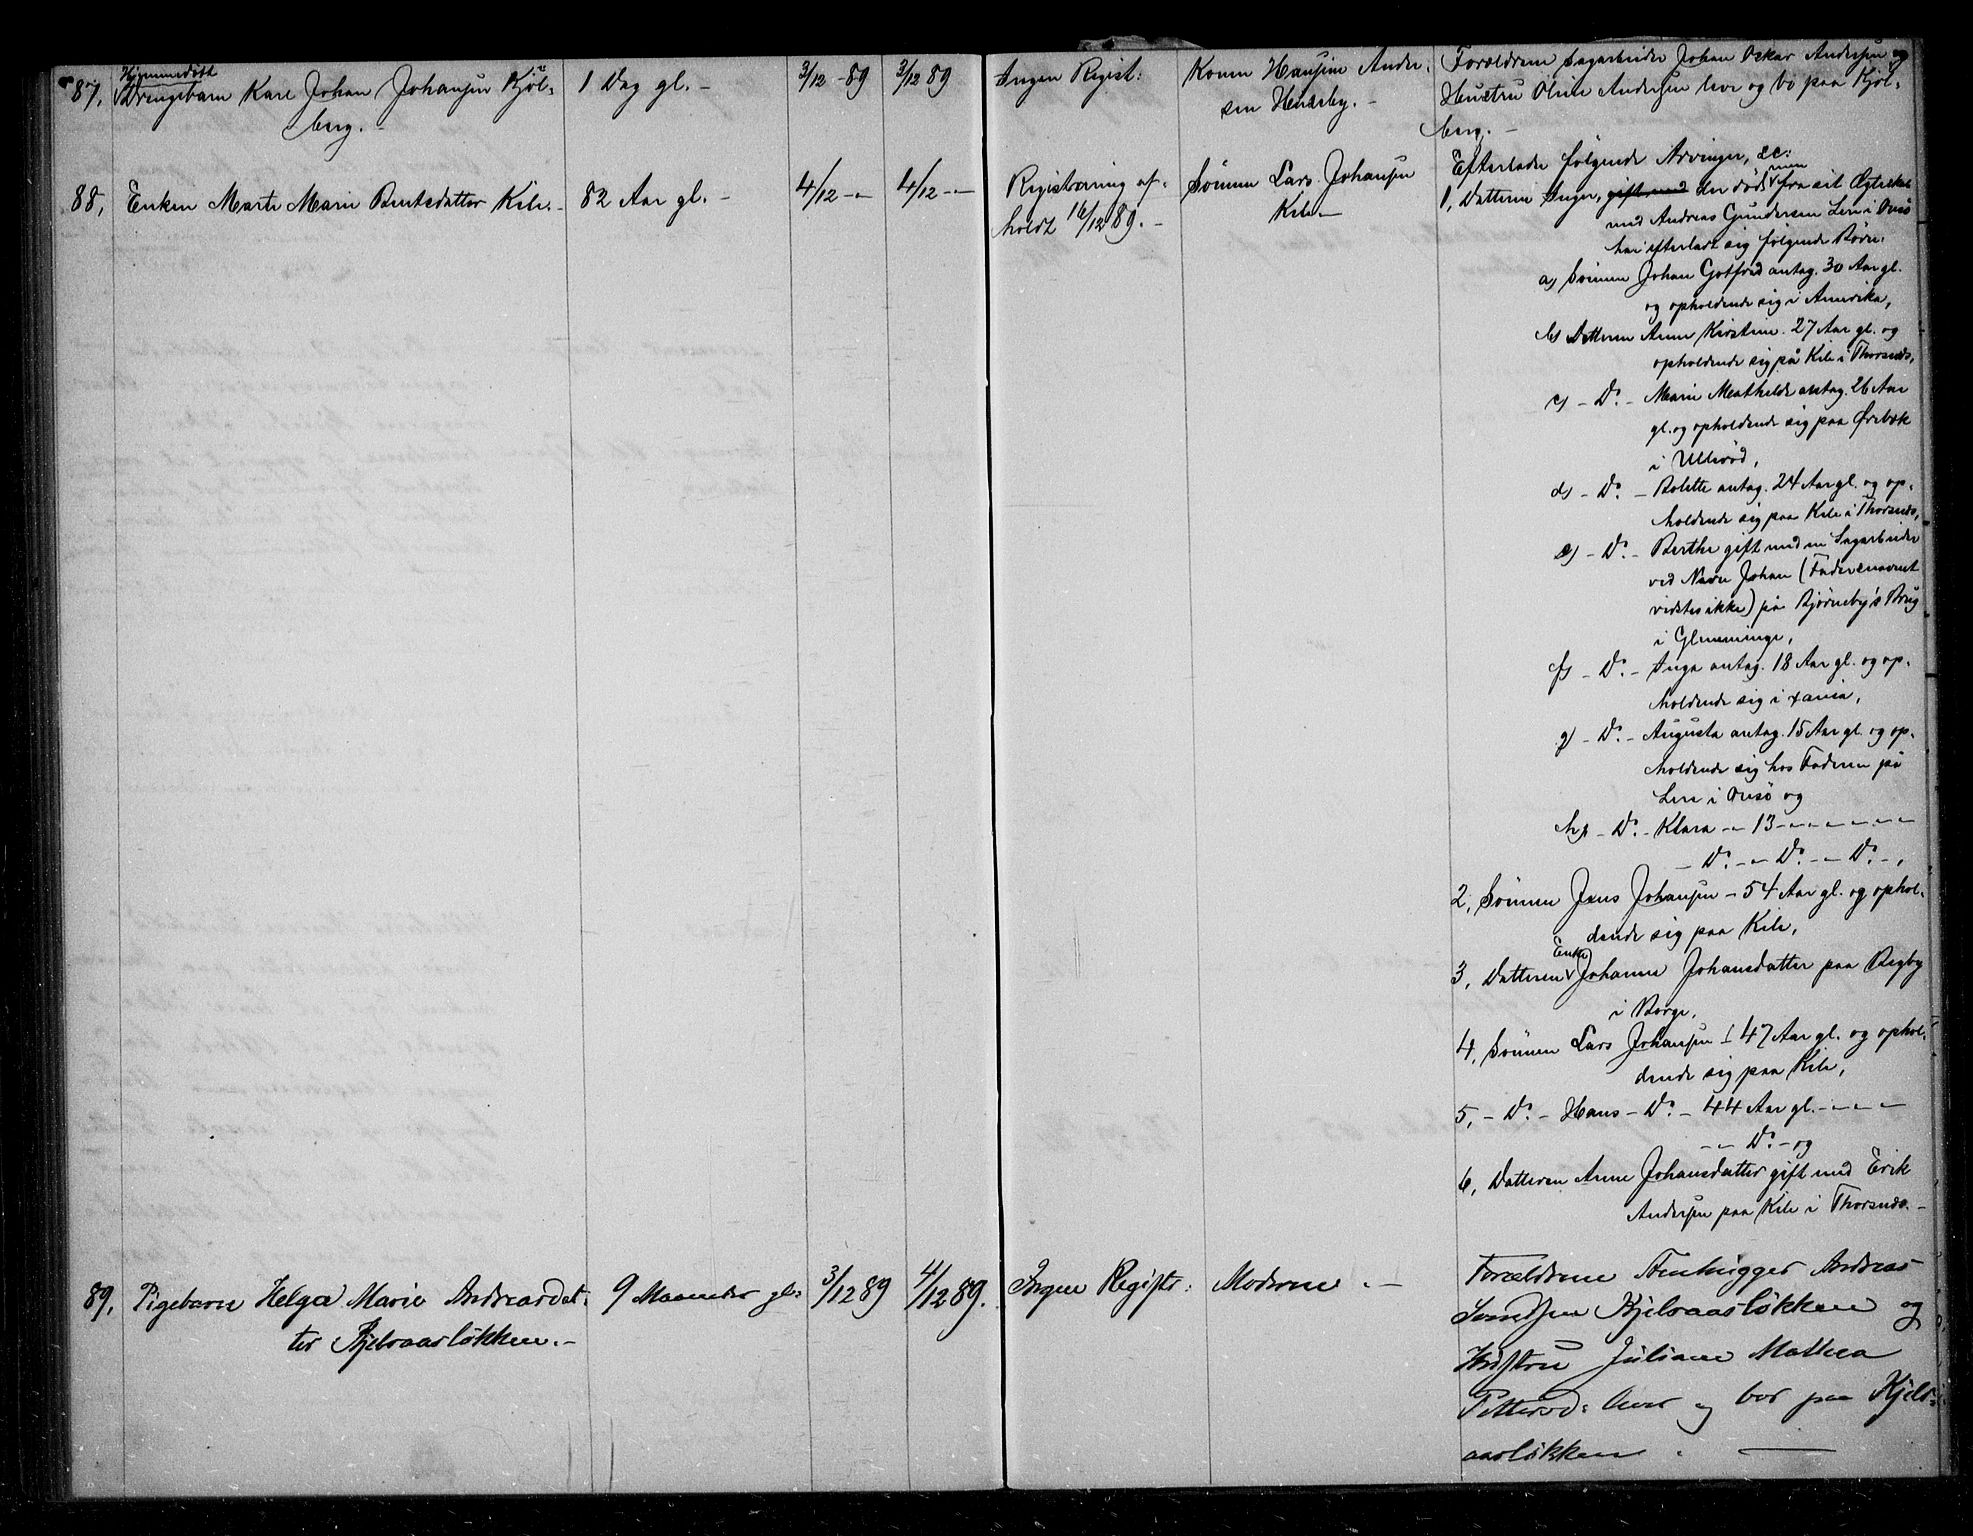 87, Hjemmedöbt
Drengebarn Karl Johan Johansen Kjöl-
berg. -
1 Dag gl. -
3/12 - 89
3/12 89
Ingen Regist:
Konen Hansine Ander-
sen Heideby. -
Forældrene Sagarbeider Johan Oskar Andersen og
Hustru Oline Andersen leve og bo paa Kjöl-
berg. -
88, Enken Marte Marie Bentsdatter Kile. -
82 Aar gl. -
4/12 - -
4/12 - -
Registrering af-
holdt 16/12 89. -
Sönnen Lars Johansen
Kile -
Efterlader følgende Arvinger, sc:
1, Datteren Inger, gift med der döde men fra sit Ægteskab
med Andreas Gundersen Lere i Onsö
har efterladt sig følgende Börn:
a) Sönnen Johan Gotfred antag. 30 Aar gl.
og opholdende sig i Amerika,
b) Datteren Anne Kirstine 27 Aar gl. og
opholdende sig på Kile i Thorsnæs,
c) - Do. - Marie Mathilde antag. 26 Aar
gl. og opholdende sig paa Ørebæk
i Ulleröd,
d) - Do. - Bolette antag. 24 Aar gl. og op-
holdende sig paa Kile i Thorsnæs,
e) - Do. - Berthe gift med en Sagarbeider
ved Navn Johan (Faderenavnet
vidstes ikke) på Bjørneby's Brug
i Glemminge,
f) - Do. - Inga antag. 18 Aar gl. og op-
holdende sig i Xania,
g) - Do. - Augusta antag. 15 Aar gl. og op-
holdende sig hos Faderen på
Lere i Onsö og
h) - Do. - Klara - - 13 - - - - - - -
- Do. - - Do. - - Do. - ,
2, Sönnen Jens Johansen - 54 Aar gl. og ophol-
dende sig paa Kile,
3, Datteren Enke Johanne Johansdatter paa Begby
i Borge,
4, Sönnen Lars Johansen - 47 Aar gl. og ophol-
dende sig paa Kile,
5, - Do. - Hans - Do. - 44 Aar gl. - - - -
- - Do. - og
6, Datteren Anne Johansdatter gift med Erik
Andersen paa Kile i Thorsnæs. -
89, Pigebarn Helga Marie Andreasdat-
ter Kjelsaasløkken. -
9 Maaneder gl:
3/12 89
4/12 89.
Ingen Registr:
Moderen. -
Forældrene Stenhugger Andreas
Svendsen Kjelsaasløkken og
Hustru Juliane Mathea
Petterød: lever og bor paa Kjels-
aasløkken. -